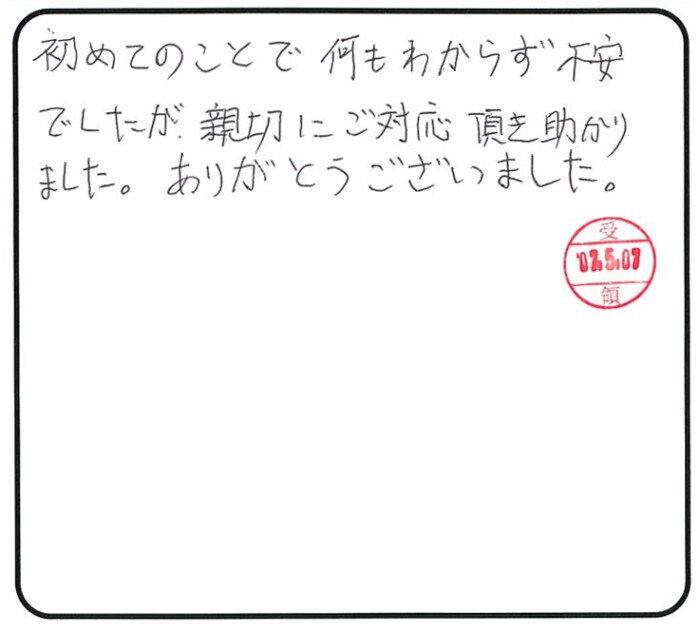 初めてのことで 何もわからず 不安
でしたが 親切にご対応 頂き助かり
ました。 ありがとうございました。
受
'07.5.07
領